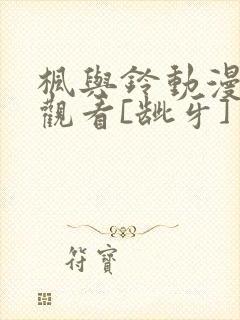 楓與鈴動漫
觀看[齜牙]
符寶